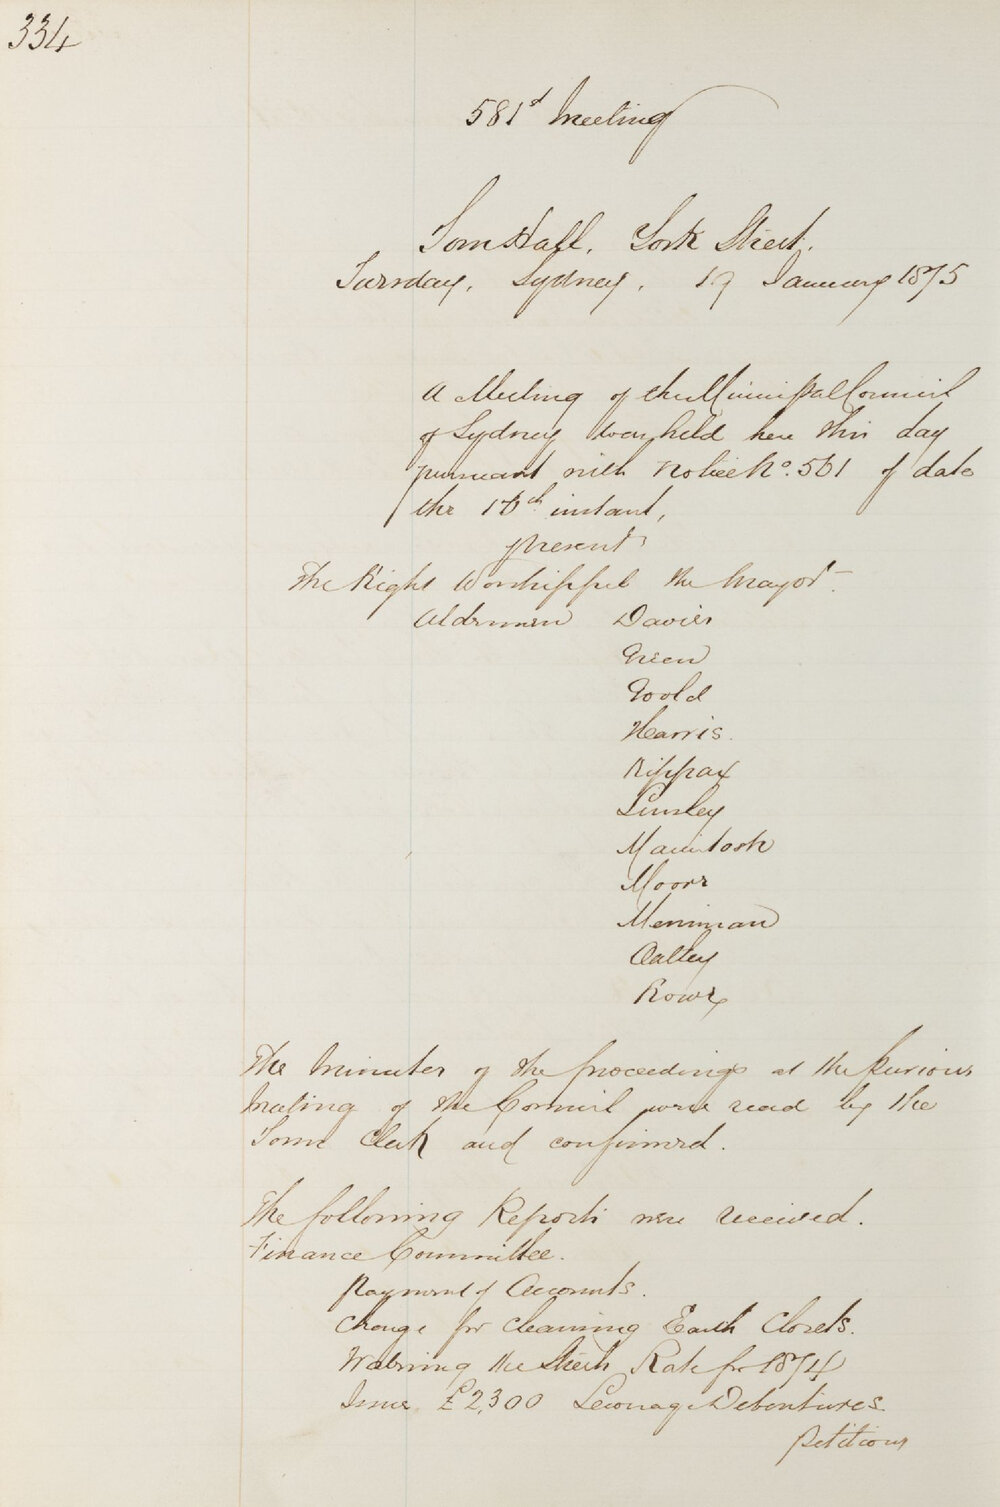 334
581st Meeting
Town Hall. York Street.
Tuesday, Sydney, 19 January 1875
A Meeting of the Municipal Council
of Sydney was held here this day
pursuant with Notice No. 561 of date
the 16th instant,
present
The Right Worshipful the Mayor -
Aldermen Davies
Green
Woold
Harris.
Kippax
Linsley
Macintosh
Moore
Merriman
Oatley
Rowe
The Minutes of the proceedings at the previous
Meeting of the Council were read by the
Town Clerk and confirmed.
The following Reports were received.
Finance Committee.
Payment of Accounts.
Charge for cleaning Earth Closets.
Watering the Streets Rate for 1874
Issue £2,300 Sewerage Debentures
Petitions